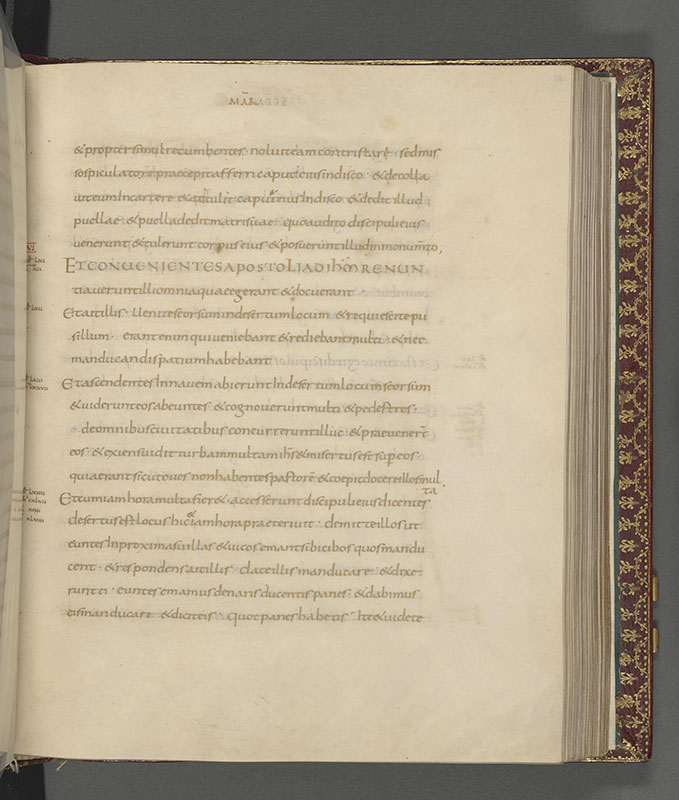 MAR
& propter simul recumbentes noluit eam contristare sed mis
so spiculatore praecepit afferri caput eius in disco & decolla
uit eum in carcere & attulit caput eius in disco & dedit illud
puellae & puella dedit matri suae quo audito discipuli eius
uenerunt & tulerunt corpus eius & posuerunt illud in monumto,
ET CONUENIENTES APOSTOLI AD ihm RENUN
tiauerunt illi omnia quae egerant & docuerant
Et ait illis uenite seorsum in desertum locum & requiescite pu
sillum erant enim qui ueniebant & rediebant multi & nec
manducandi spatium habebant
Et ascendentes in nauem abierunt in desertum locum seorsum
& uiderunt eos abeuntes & cognouerunt multi & pedestres
de omnibus ciuitatibus concurrerunt illuc & praeuenert
eos & exiens uidit turbam multam ihs & misertus est super eos
quia erant sicut oues non habentes pastore & coepit docere illos mul
ta
Et cum iam hora multa fier& accesserunt discipuli eius dicentes
desertus est locus hic et iam hora praeteriuit dimitte illos ut
euntes in proximas uillas & uicos emant sibi cibos quos mandu
cent & respondens ait illis date illis manducare & dixe
runt ei euntes emamus denariis ducentis panes & dabimus
eis manducare & dicit eis quot panes habetis Ite & uidete